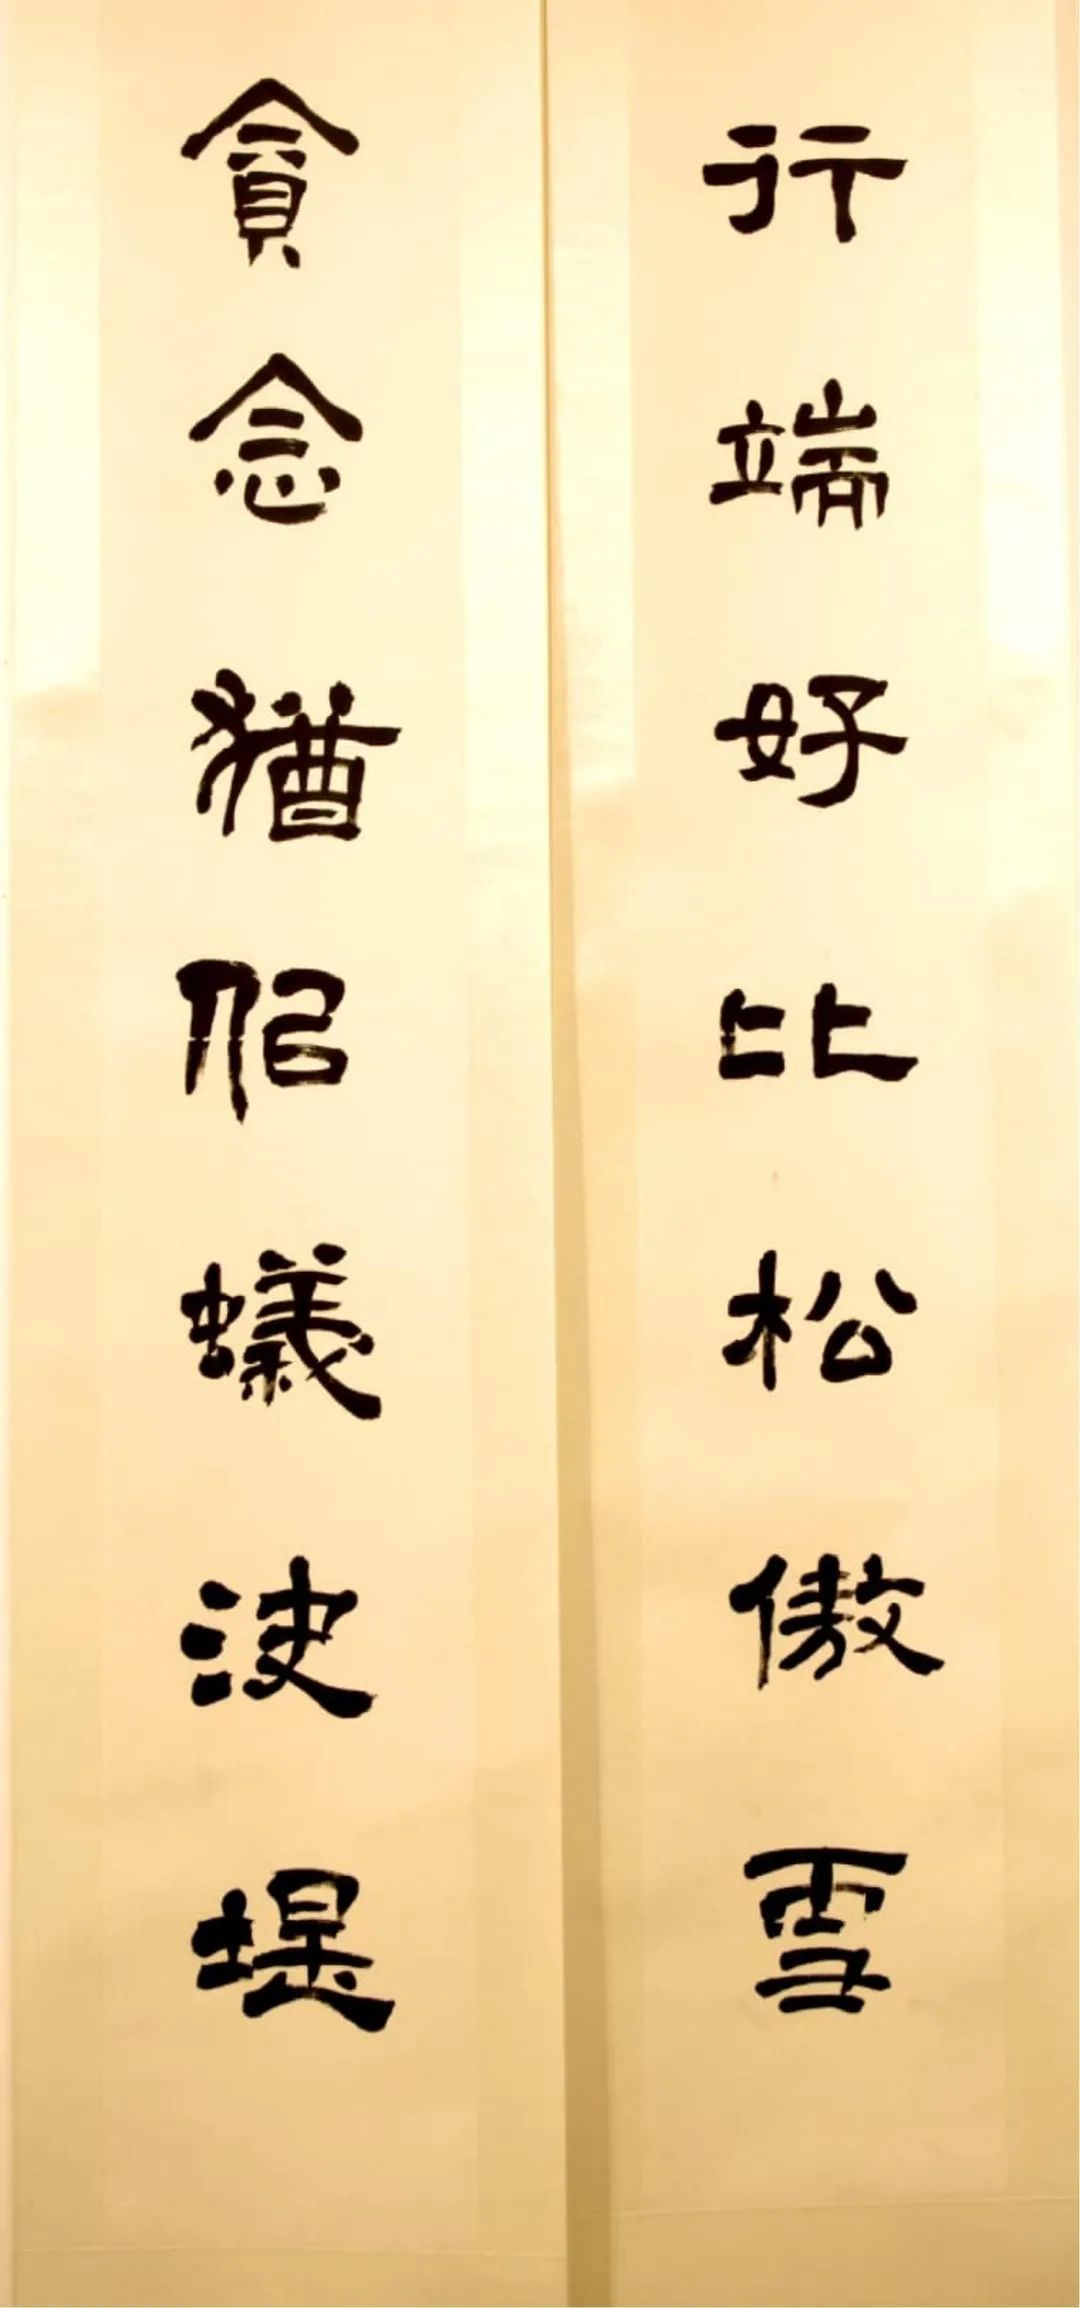 行端好比松傲雪
貪念猶佀蟻決堤